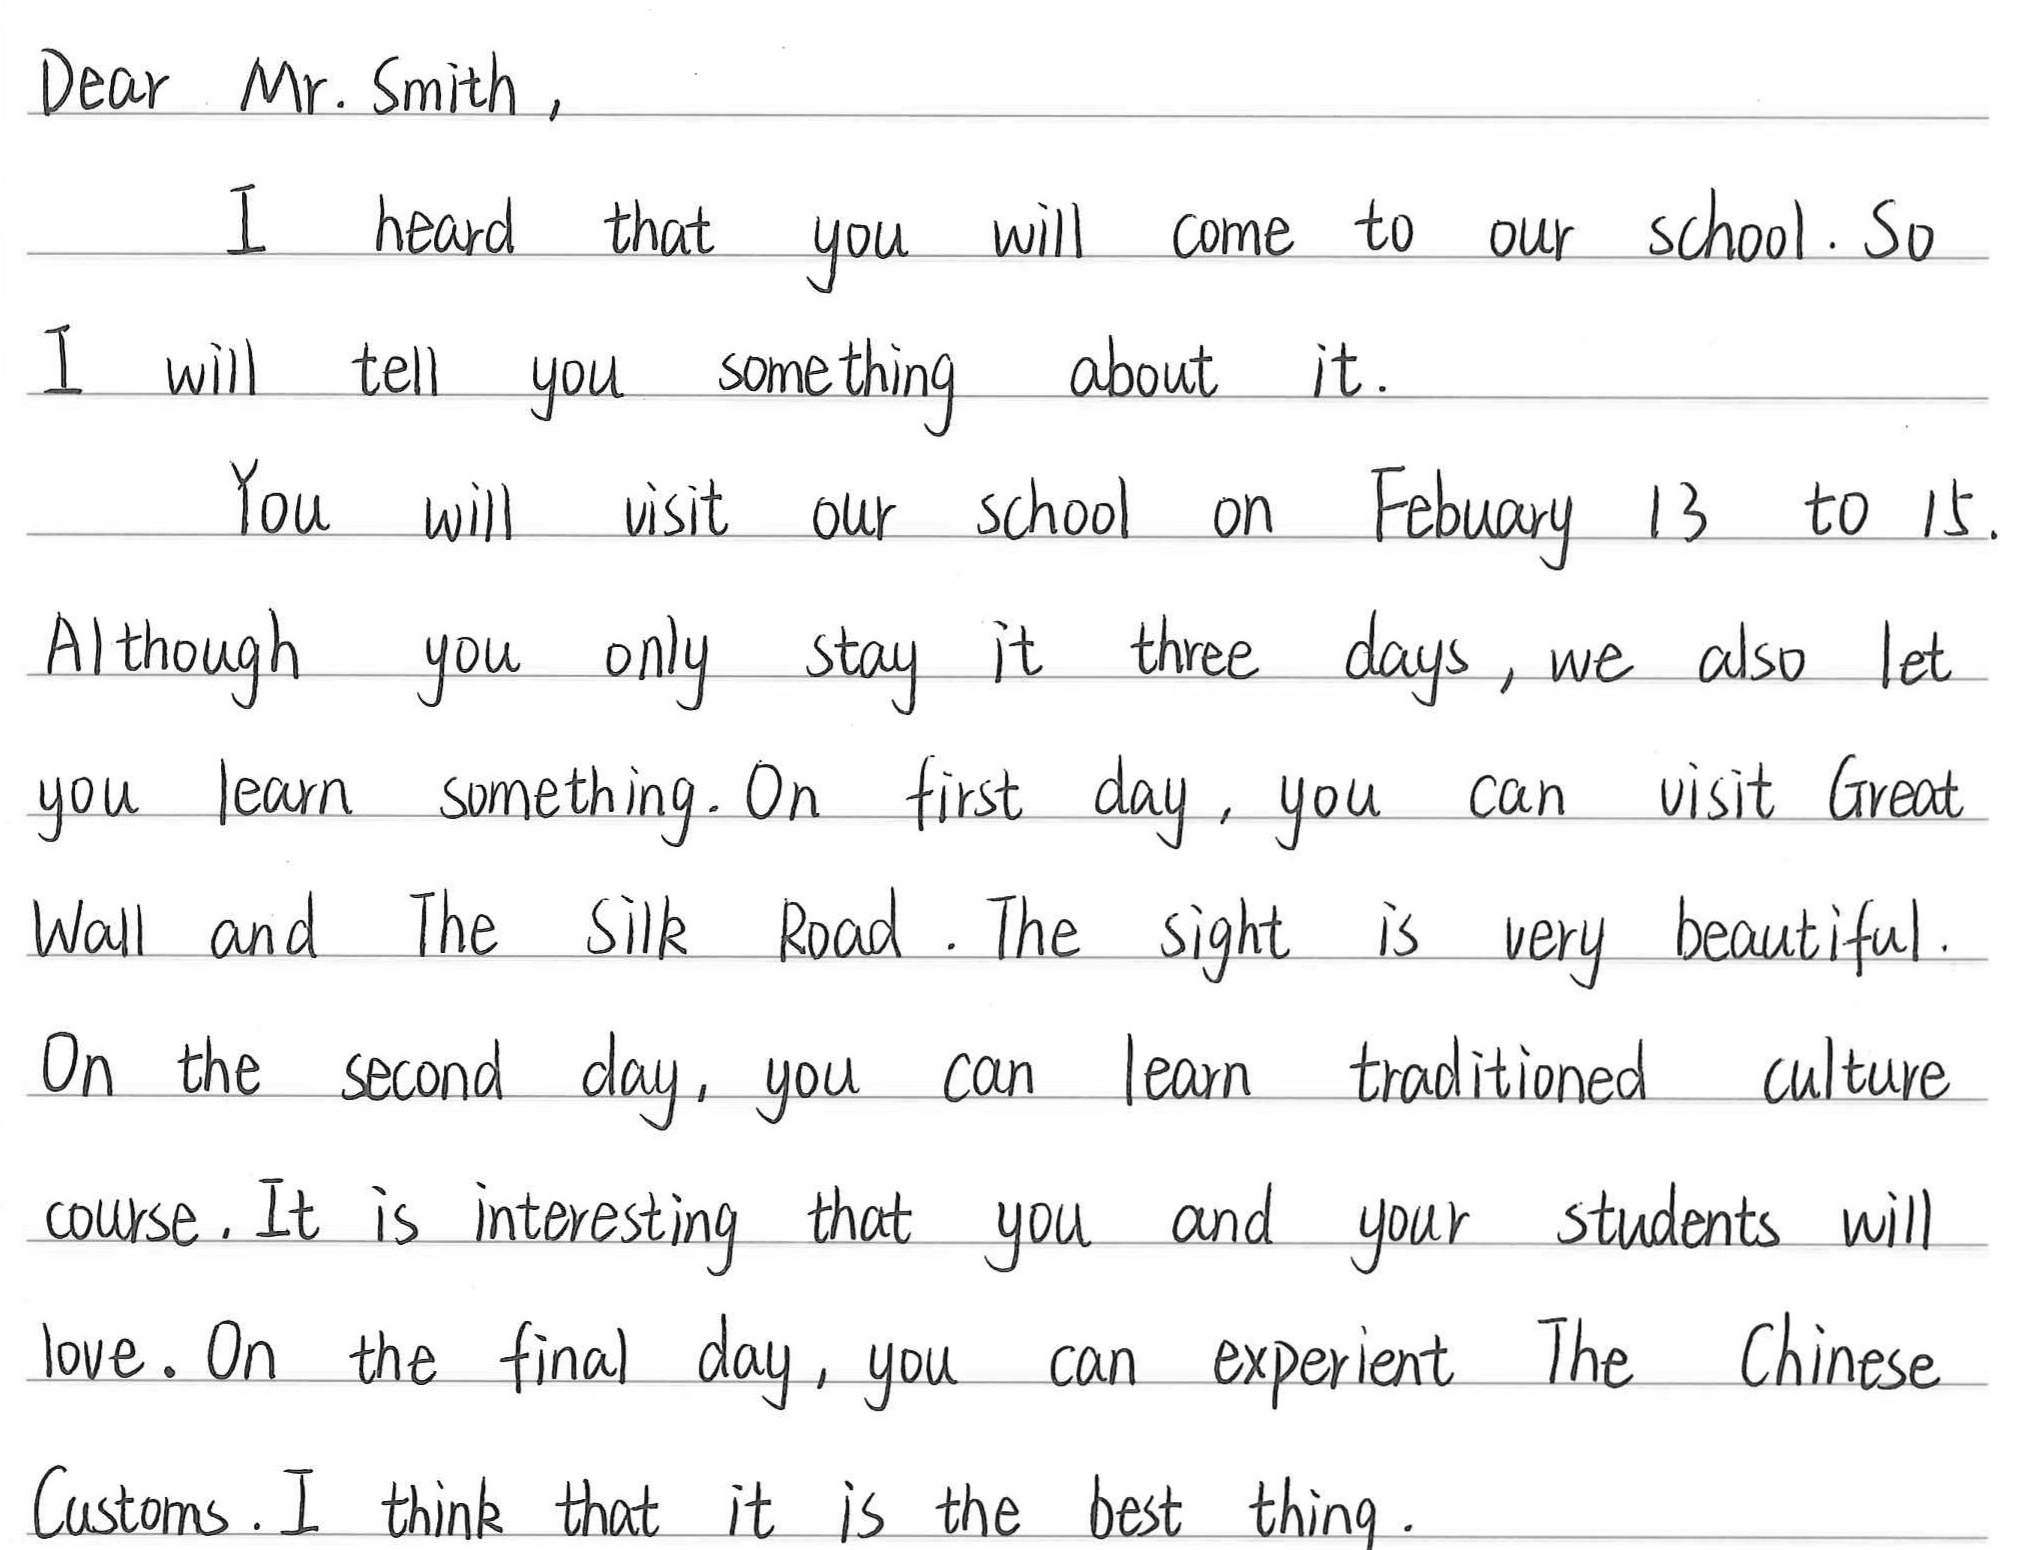 Dear Mr. Smith,
I heard that you will come to our school. So
I will tell you something about it.
You will visit our school on Febuary 13 to 15.
Although you only stay it three days, we also let
you learn something. On first day, you can visit Great
Wall and The Silk Road. The sight is very beautiful.
On the second day, you can learn traditioned culture
course. It is interesting that you and your students will
love. On the final day, you can experient The Chinese
Customs. I think that it is the best thing.